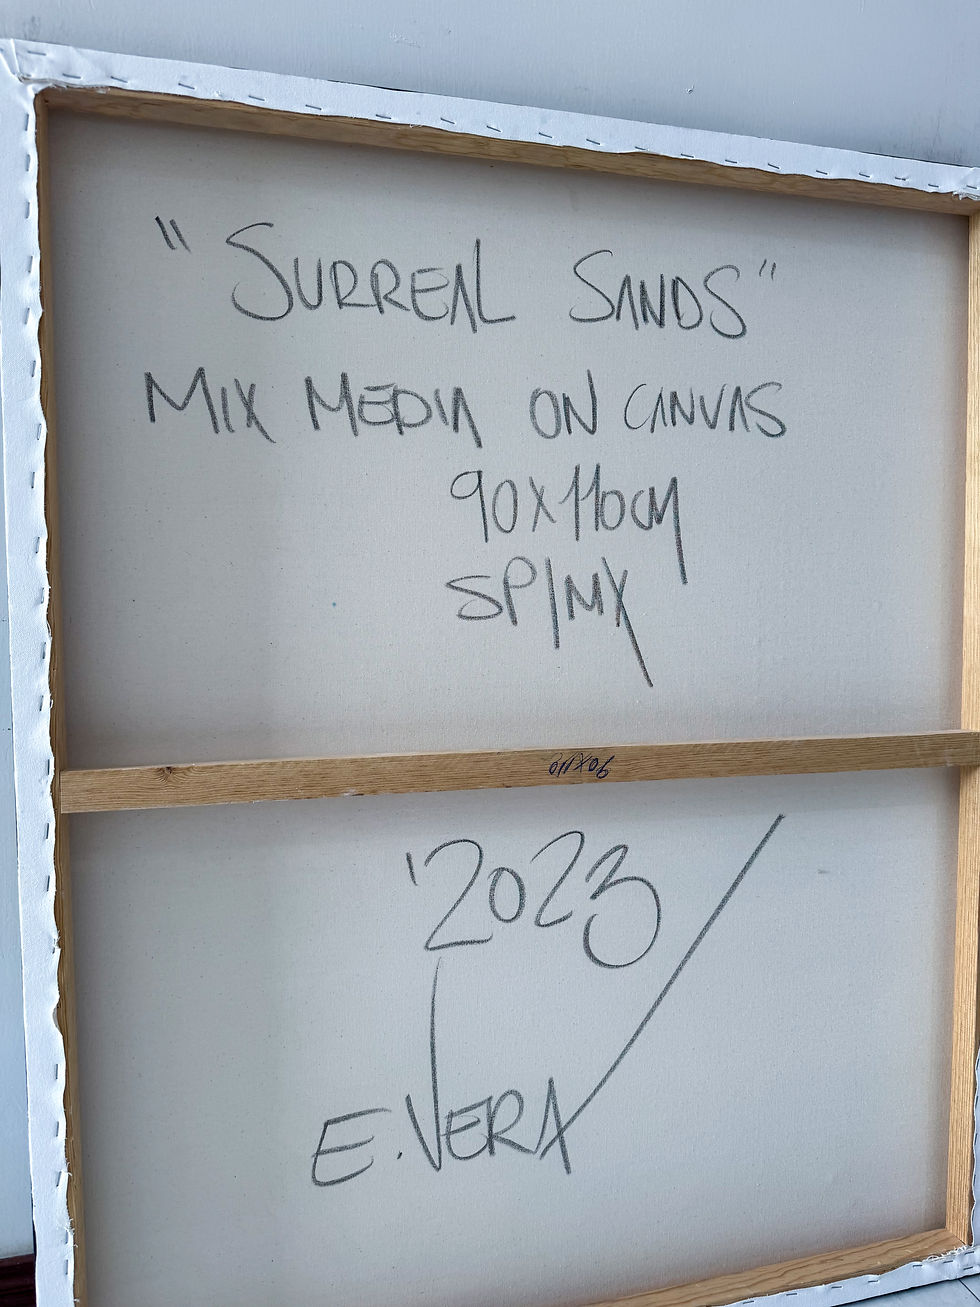 "SURREAL SANDS"
MIX MEDIA ON CANVAS
90X110CM
SP/MX
90X110
'2023
E.VERA